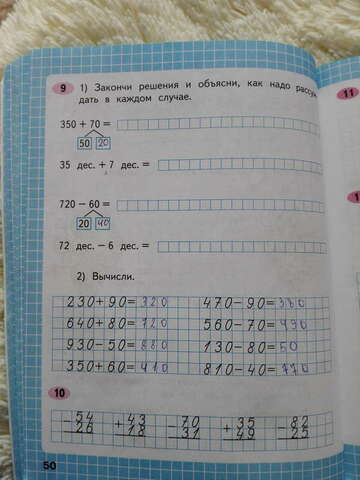 9 1) Закончи решения и объясни, как надо рассуж
11
дать в каждом случае.
350 + 70 =
50 20
35 дес. + 7 дес. =
720 − 60 =
20 40
72 дес. − 6 дес. =
2) Вычисли.
230+90=320 470−90=380
640+80=720 560−70=490
930−50=880 130−80=50
350+60=410 810−40=770
10
−54 +43 −70 +35 −82
26 18 31 49 25
50